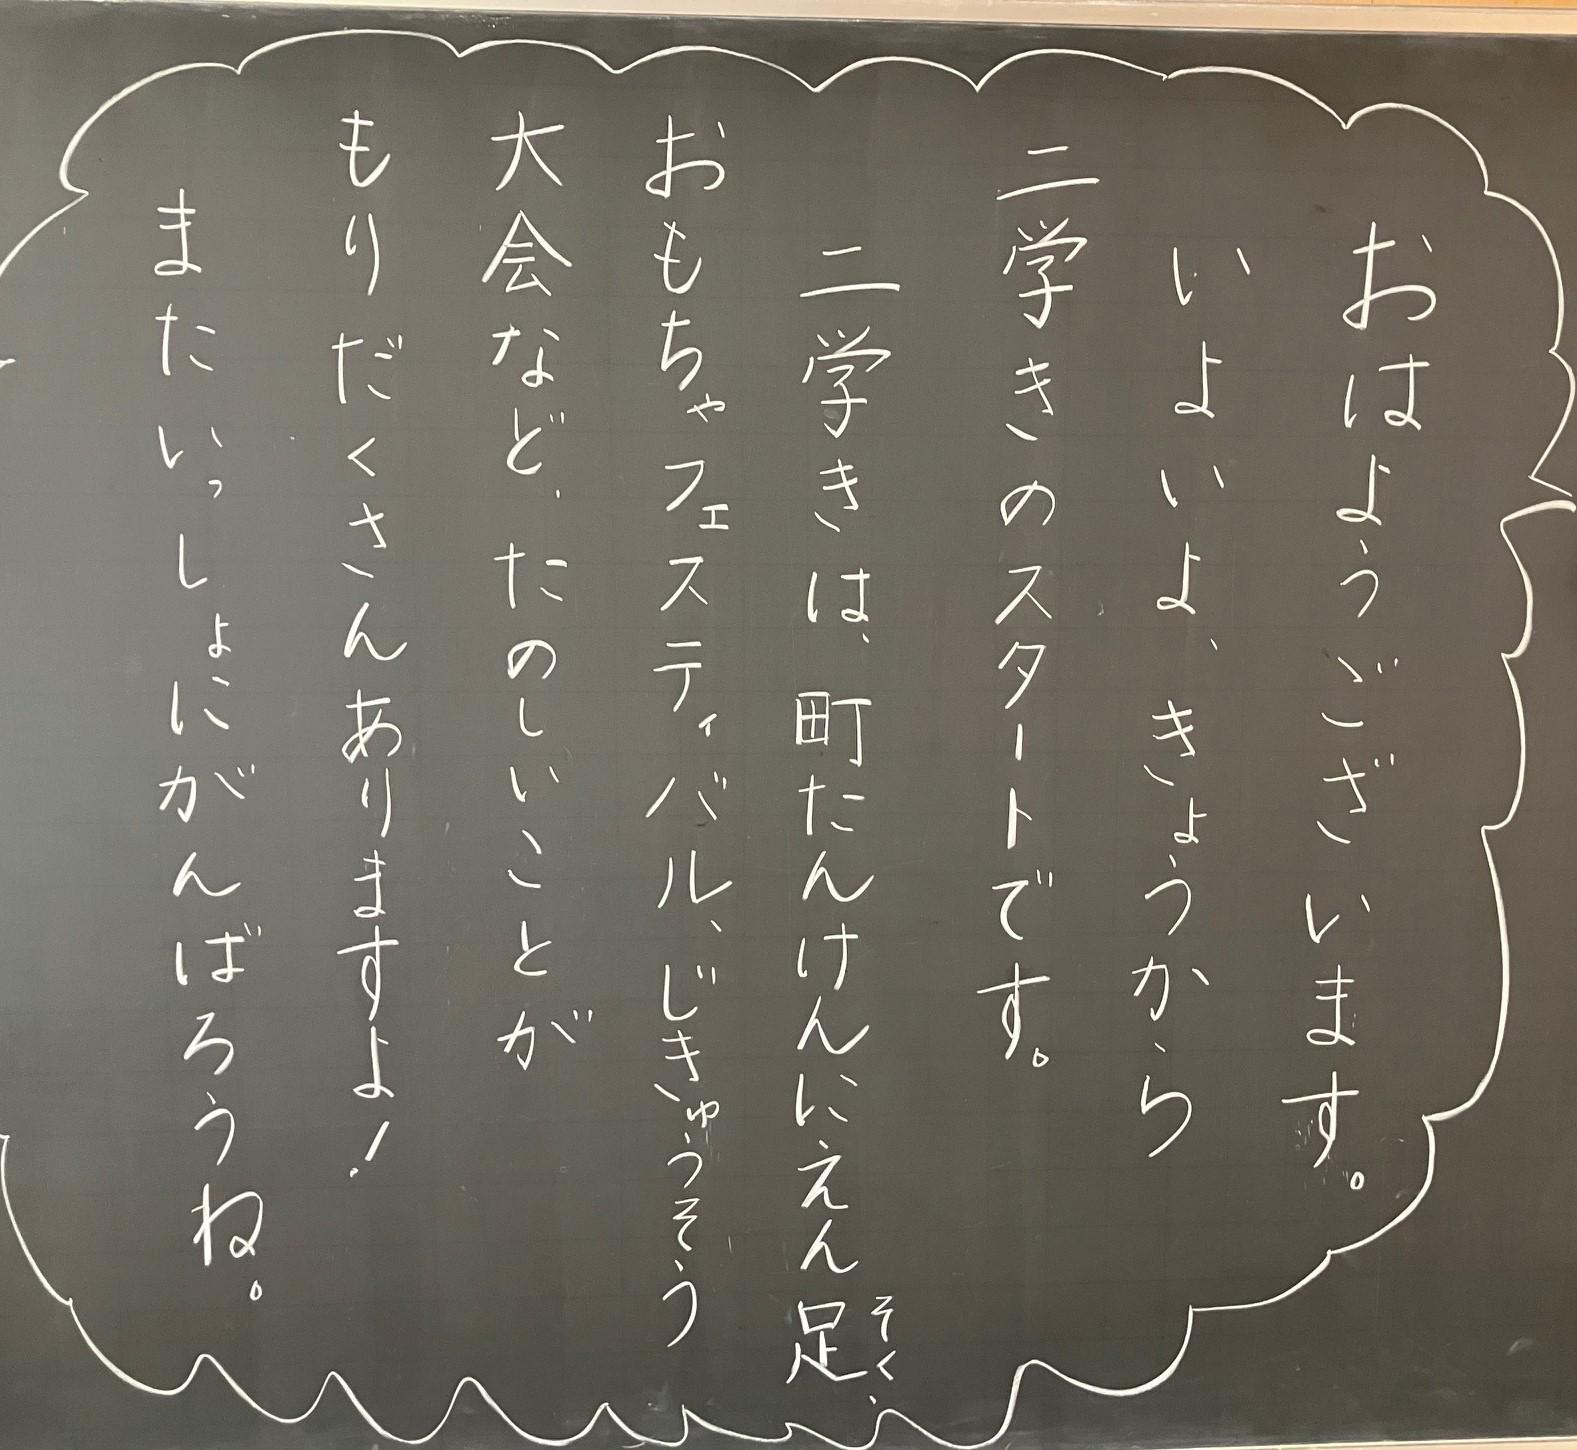 おはようございます。
いよいよ、きょうから
二学きのスタートです。
二学きは、町たんけんにえん足、
そく
おもちゃフェスティバル、じきゅうそう
大会など、たのしいことが
もりだくさんありますよ!
またいっしょにがんばろうね。